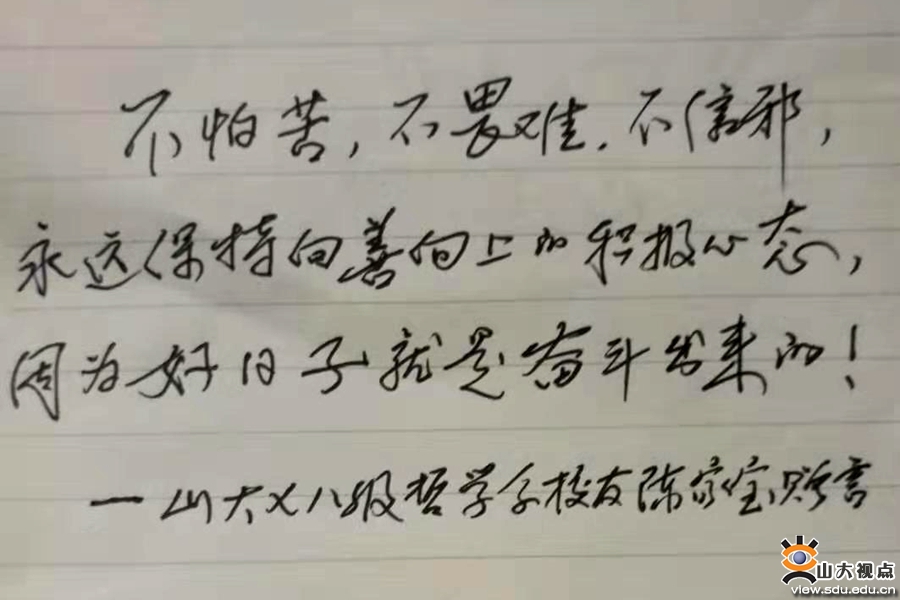 不怕苦，不畏难，不信邪，
永远保持向善向上的积极心态，
因为好日子就是奋斗出来的！
—山大七八级哲学系校友陈家宝赠言
山大视点
view.sdu.edu.cn